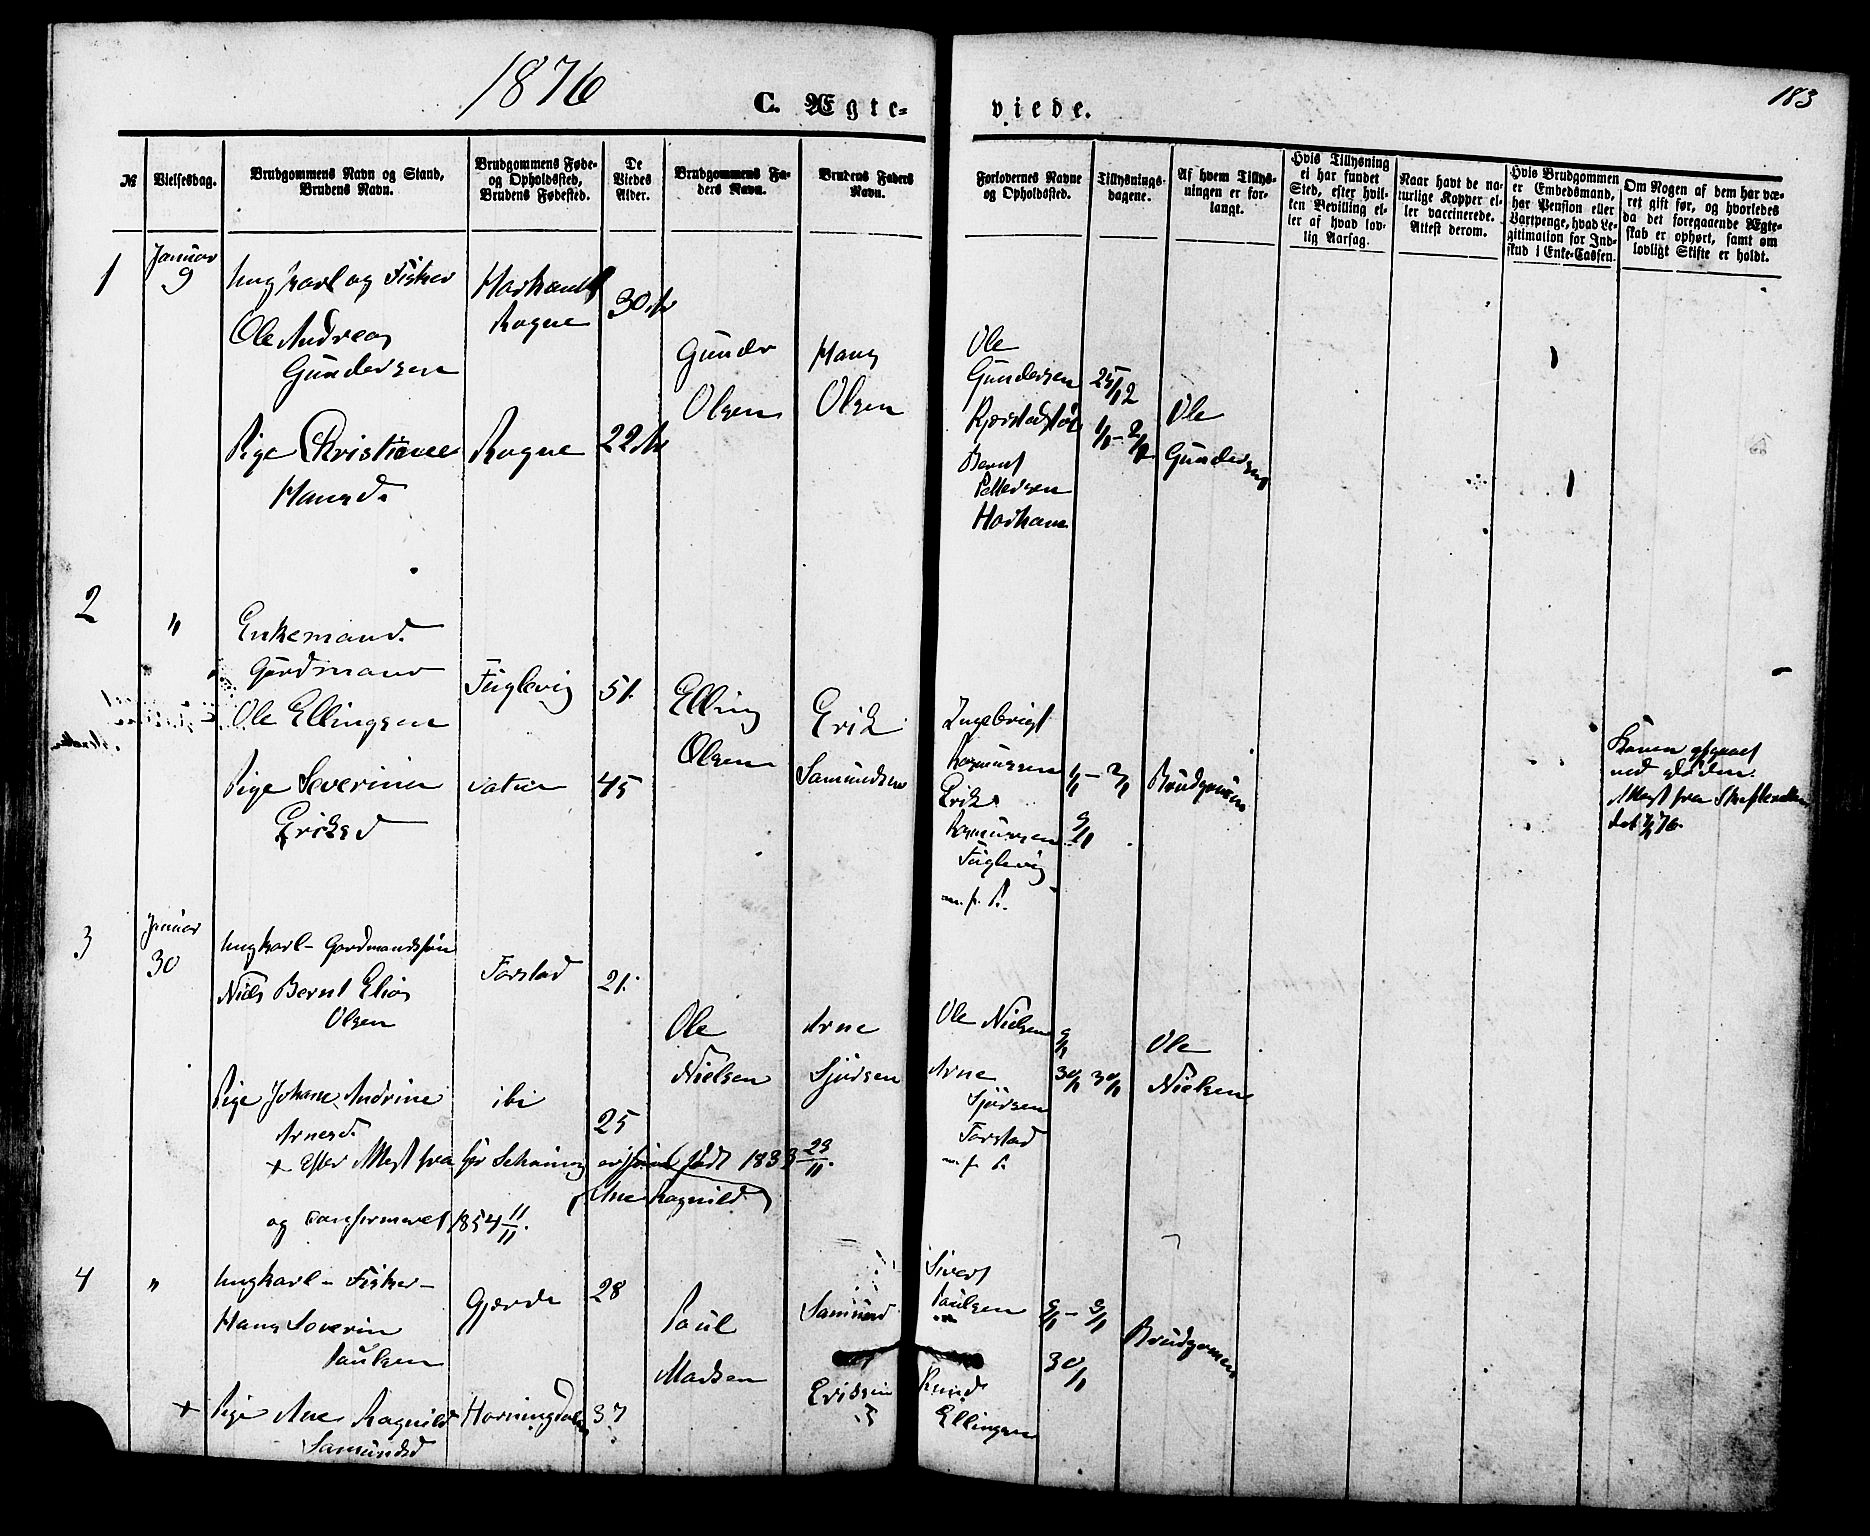 1876
C. Ægte-
viede.
183
№
Vielsesdag.
Brudgommens Navn og Stand,
Brudens Navn.
Brudgommens Føde-
og Opholdssted,
Brudens Fødested.
De
Viedes
Alder.
Brudgommens Fa-
ders Navn.
Brudens Faders
Navn.
Forlovernes Navne
og Opholdssted.
Tillysnings-
dagene.
Af hvem Tillys-
ningen er for-
langt.
Hvis Tillysning
ei har fundet
Sted, efter hvil-
ken Bevilling el-
ler af hvad lov-
lig Aarsag.
Naar havt de na-
turlige Kopper el-
ler vaccinerede.
Attest derom.
Hvis Brudgommen
er Embedsmand,
har Pension eller
Vartpenge, hvad Le-
gitimation for Ind-
skud i Enke-Cassen.
Om Nogen af dem har væ-
ret gift før, og hvorledes
da det foregaaende Ægte-
skab er ophørt, samt om
lovligt Skifte er holdt.
1
Januar
9
Ungkarl og Fisker
Ole Andreas
Gundersen
Rogne
30
Gunder
Olsen
Hans
Olsen
Ole
Gundersen
Bernt
Pettersen
25/12
1/1 - 2/1
Ole
Gundersen
Pige Christiane
Hansd.
Rogne
22
2
"
Enkemand.
Gardmand
Ole Ellingsen
Fuglevig
51.
Elling
Olsen
Erik
Samundsen
Ingebrigt
Rasmussen
Erik
Rasmussen
Fuglevig
m. f. P.
1/1 - 2/1
9/1
Brudgommen
Pige Severine
Eriksd
45
ved døden.
Attest fra Skifteretten
3
Januar
30
Ungkarl - Gardmandssøn
Niels Bernt Elias
Olsen
Farstad
21.
Ole
Nielsen
Arne
Sjursen
Ole Nielsen
Arne
Sjursen
Farstad
m. f. P.
9/1
30/1 30/1
Ole
Nielsen
Pige Johane Andrine
Arnesd.
ibi
25
+ Efter Attest fra
født 1833 23/11.
Ane Ragnild
og confirmeret 1854 11/11.
4
"
Ungkarl - Fisker -
Hans Severin
Paulsen
Gjerde
28
Paul
Madsen
Samund
Eriksen
Sivert
Paulsen
Knud
Ellingsen
9/1 - 9/1
30/1
Brudgommen
+ Pige Ane Ragnild
Samundsd
Horningdalen
37